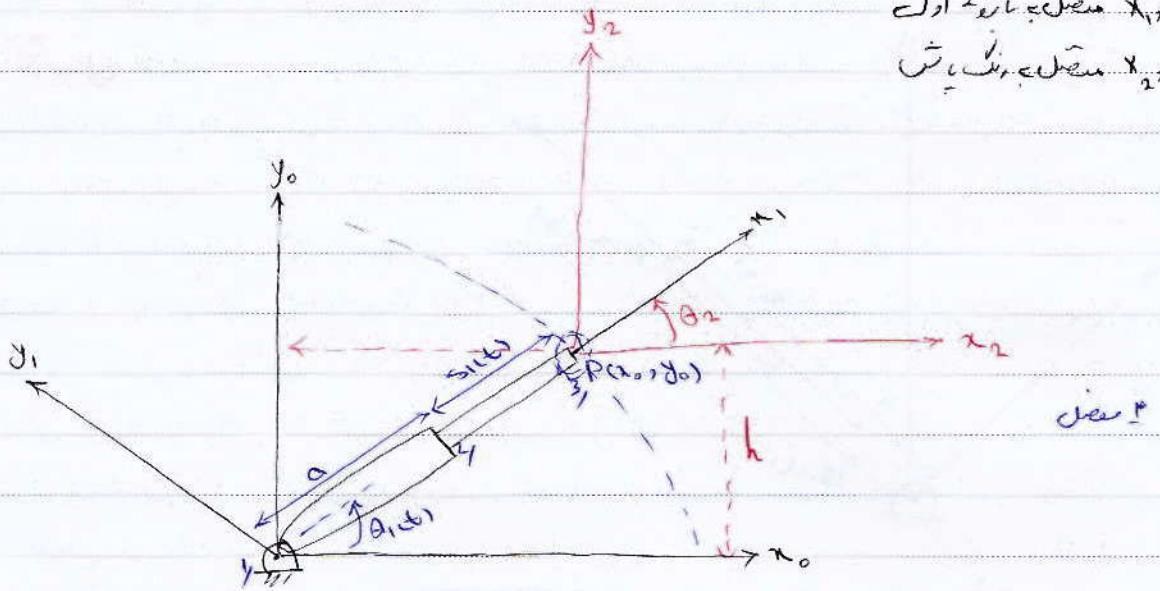 x₁, متصل به بازوی اول
x₂, متصل به رنگ پاش
y₂
y₀
x₁
θ₂
y₁
s₁(t)
x₂
P(x₀, y₀)
3,
۳ مفصل
h
a
2,
θ₁(t)
1,
x₀